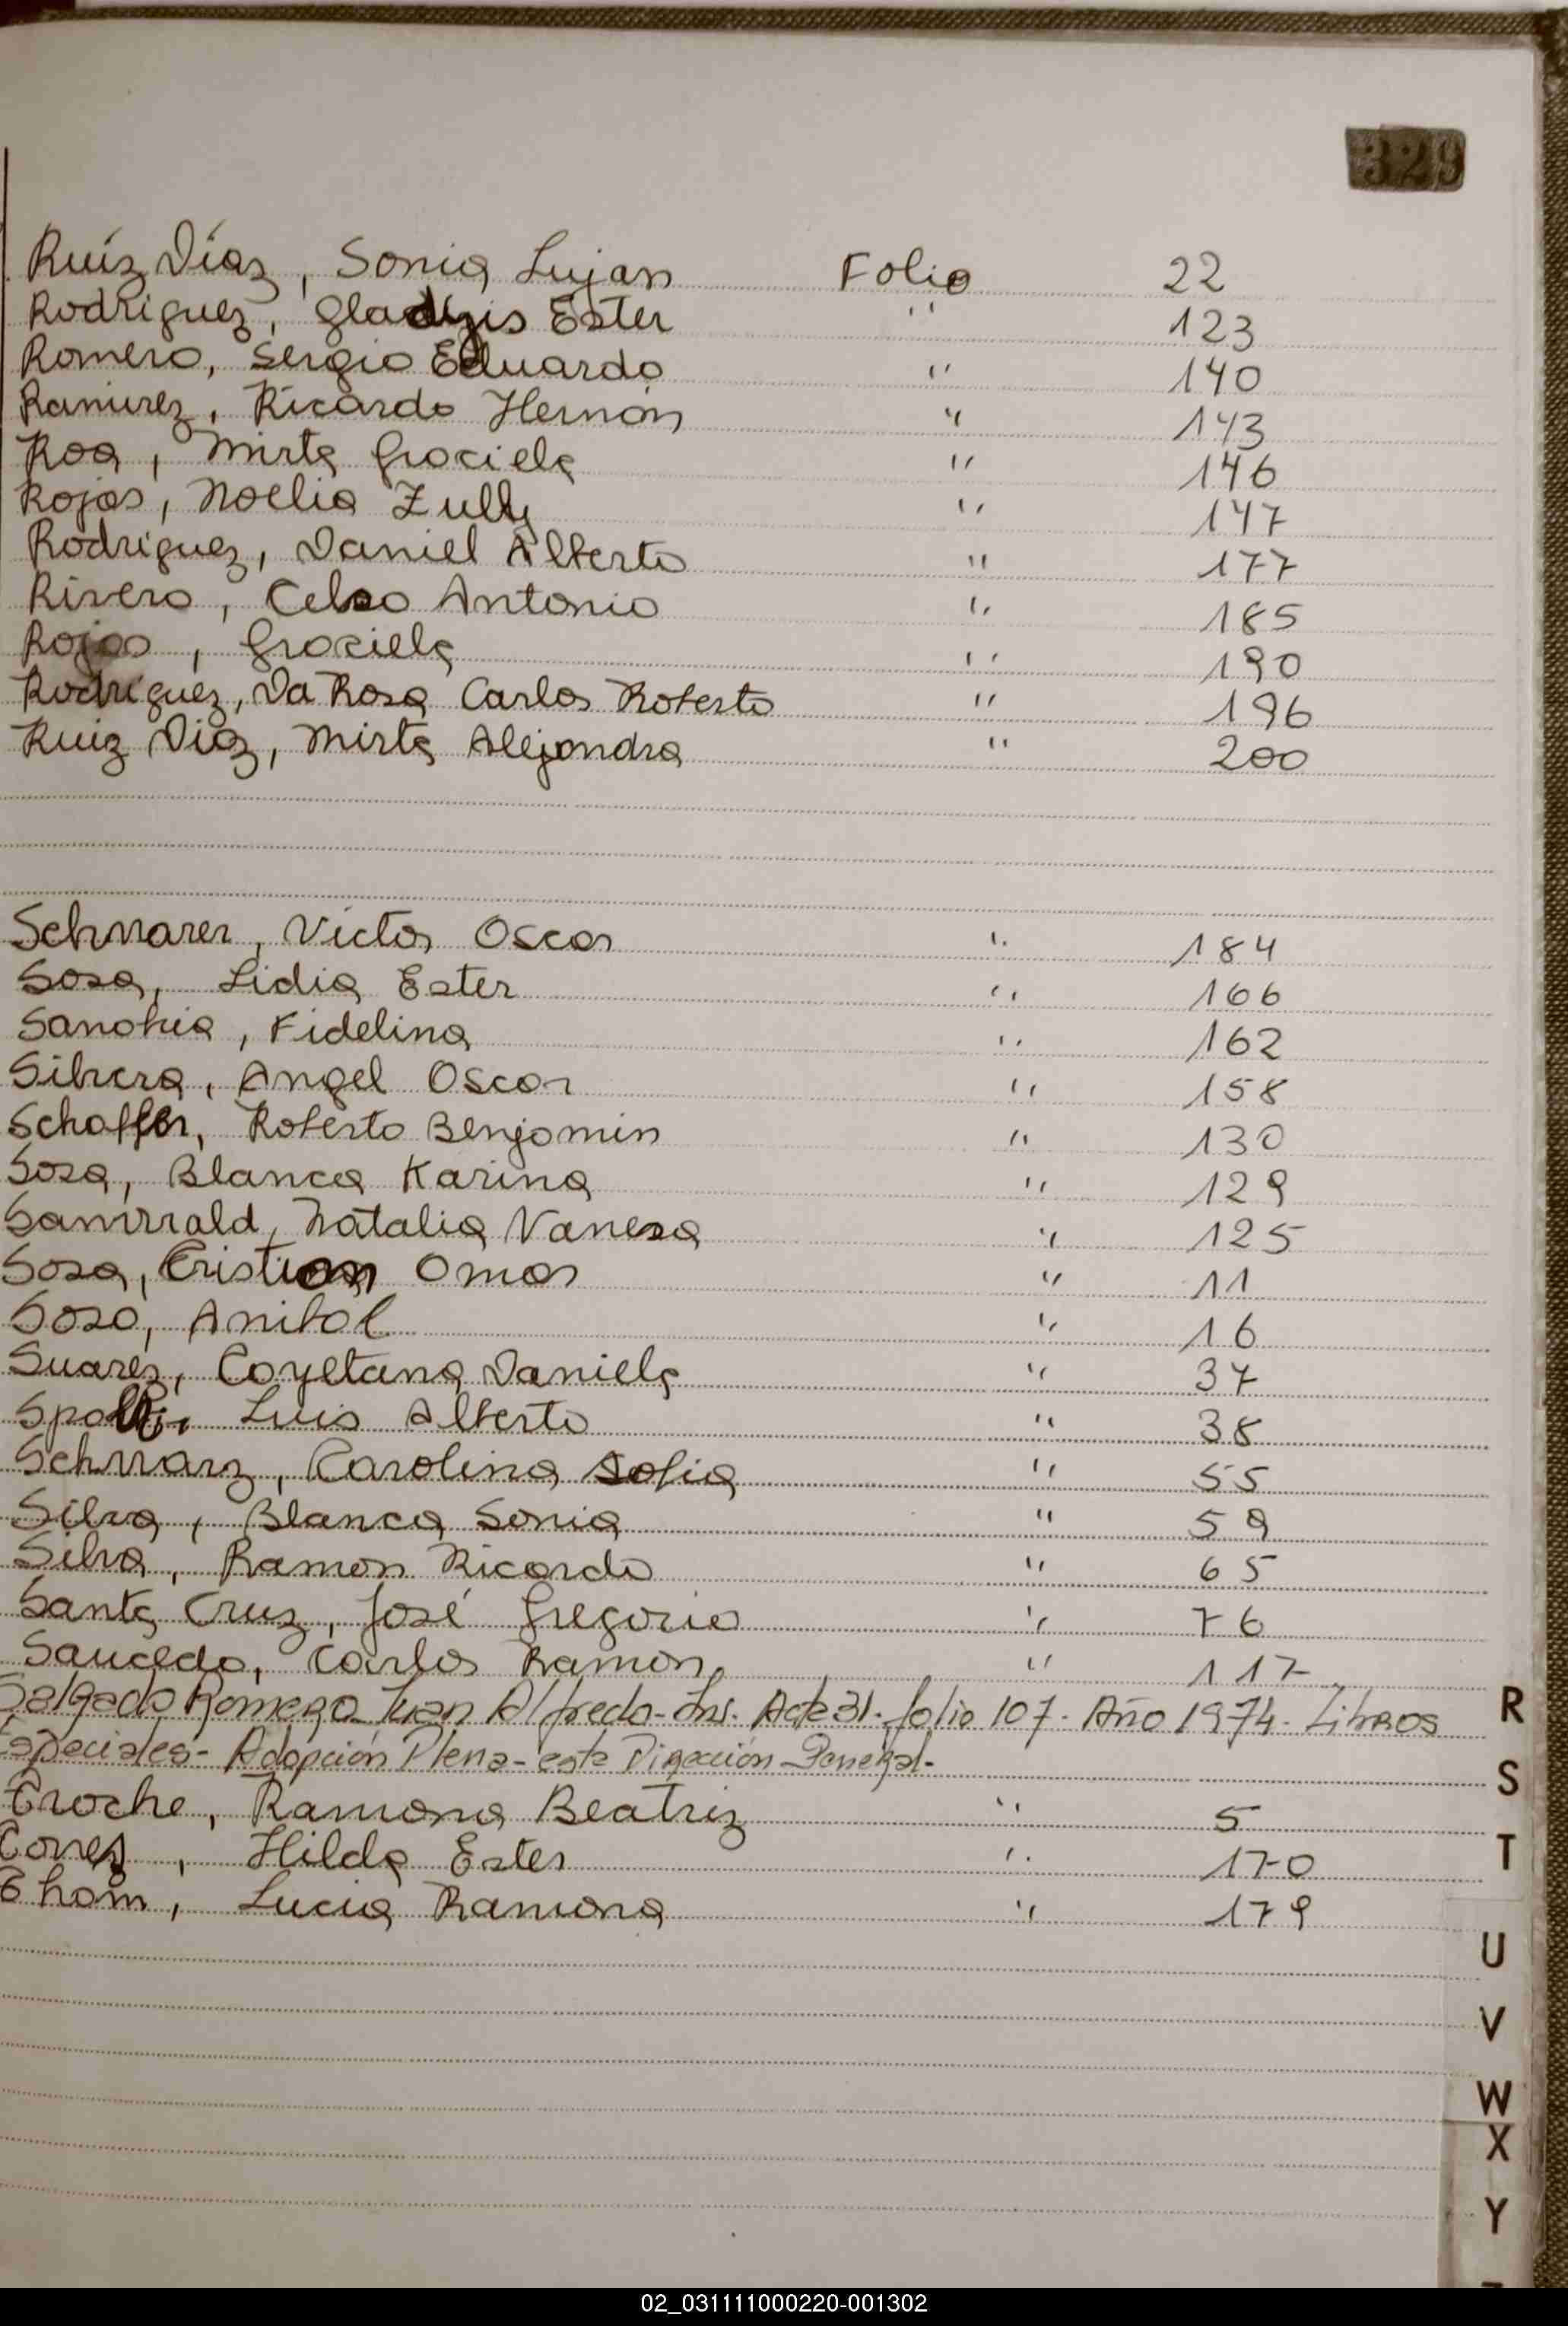 329
Ruíz Díaz, Sonia Lujan Folio 22
Rodriguez, Gladys Ester " 123
Romero, Sergio Eduardo " 140
Ramirez, Ricardo Hernán " 143
Roa, Mirta Graciela " 146
Rojas, Noelia Zully " 147
Rodriguez, Daniel Alberto " 177
Rivero, Celso Antonio " 185
Rojas, Graciela " 190
Rodríguez, Da Rosa Carlos Roberto " 196
Ruiz Diaz, Mirta Alejandra " 200
Schwarer, Victor Oscar " 184
Sosa, Lidia Ester " 166
Sanabria, Fidelina " 162
Silvera, Angel Oscar " 158
Schaffer, Roberto Benjamin " 130
Sosa, Blanca Karina " 129
Natalia Vanesa " 125
Sosa, Cristian Omar " 11
Soso, Anibal " 16
Suarez, Cayetana Daniela " 37
Luis Alberto " 38
Schwarz, Carolina Sofia " 55
Silva, Blanca Sonia " 59
Silva, Ramon Ricardo " 65
Santa Cruz, José Gregorio " 76
Saucedo, Carlos Ramon " 117
Salgado Romero Juan Alfredo - Ins. Acta 31. folio 107 - Año 1974 - Libros
Especiales - Adopción Plena - esta Dirección General -
Troche, Ramona Beatriz " 5
Torres, Hilda Ester " 170
Thom, Lucia Ramona " 179
R
S
T
U
V
W
X
Y
02_031111000220-001302